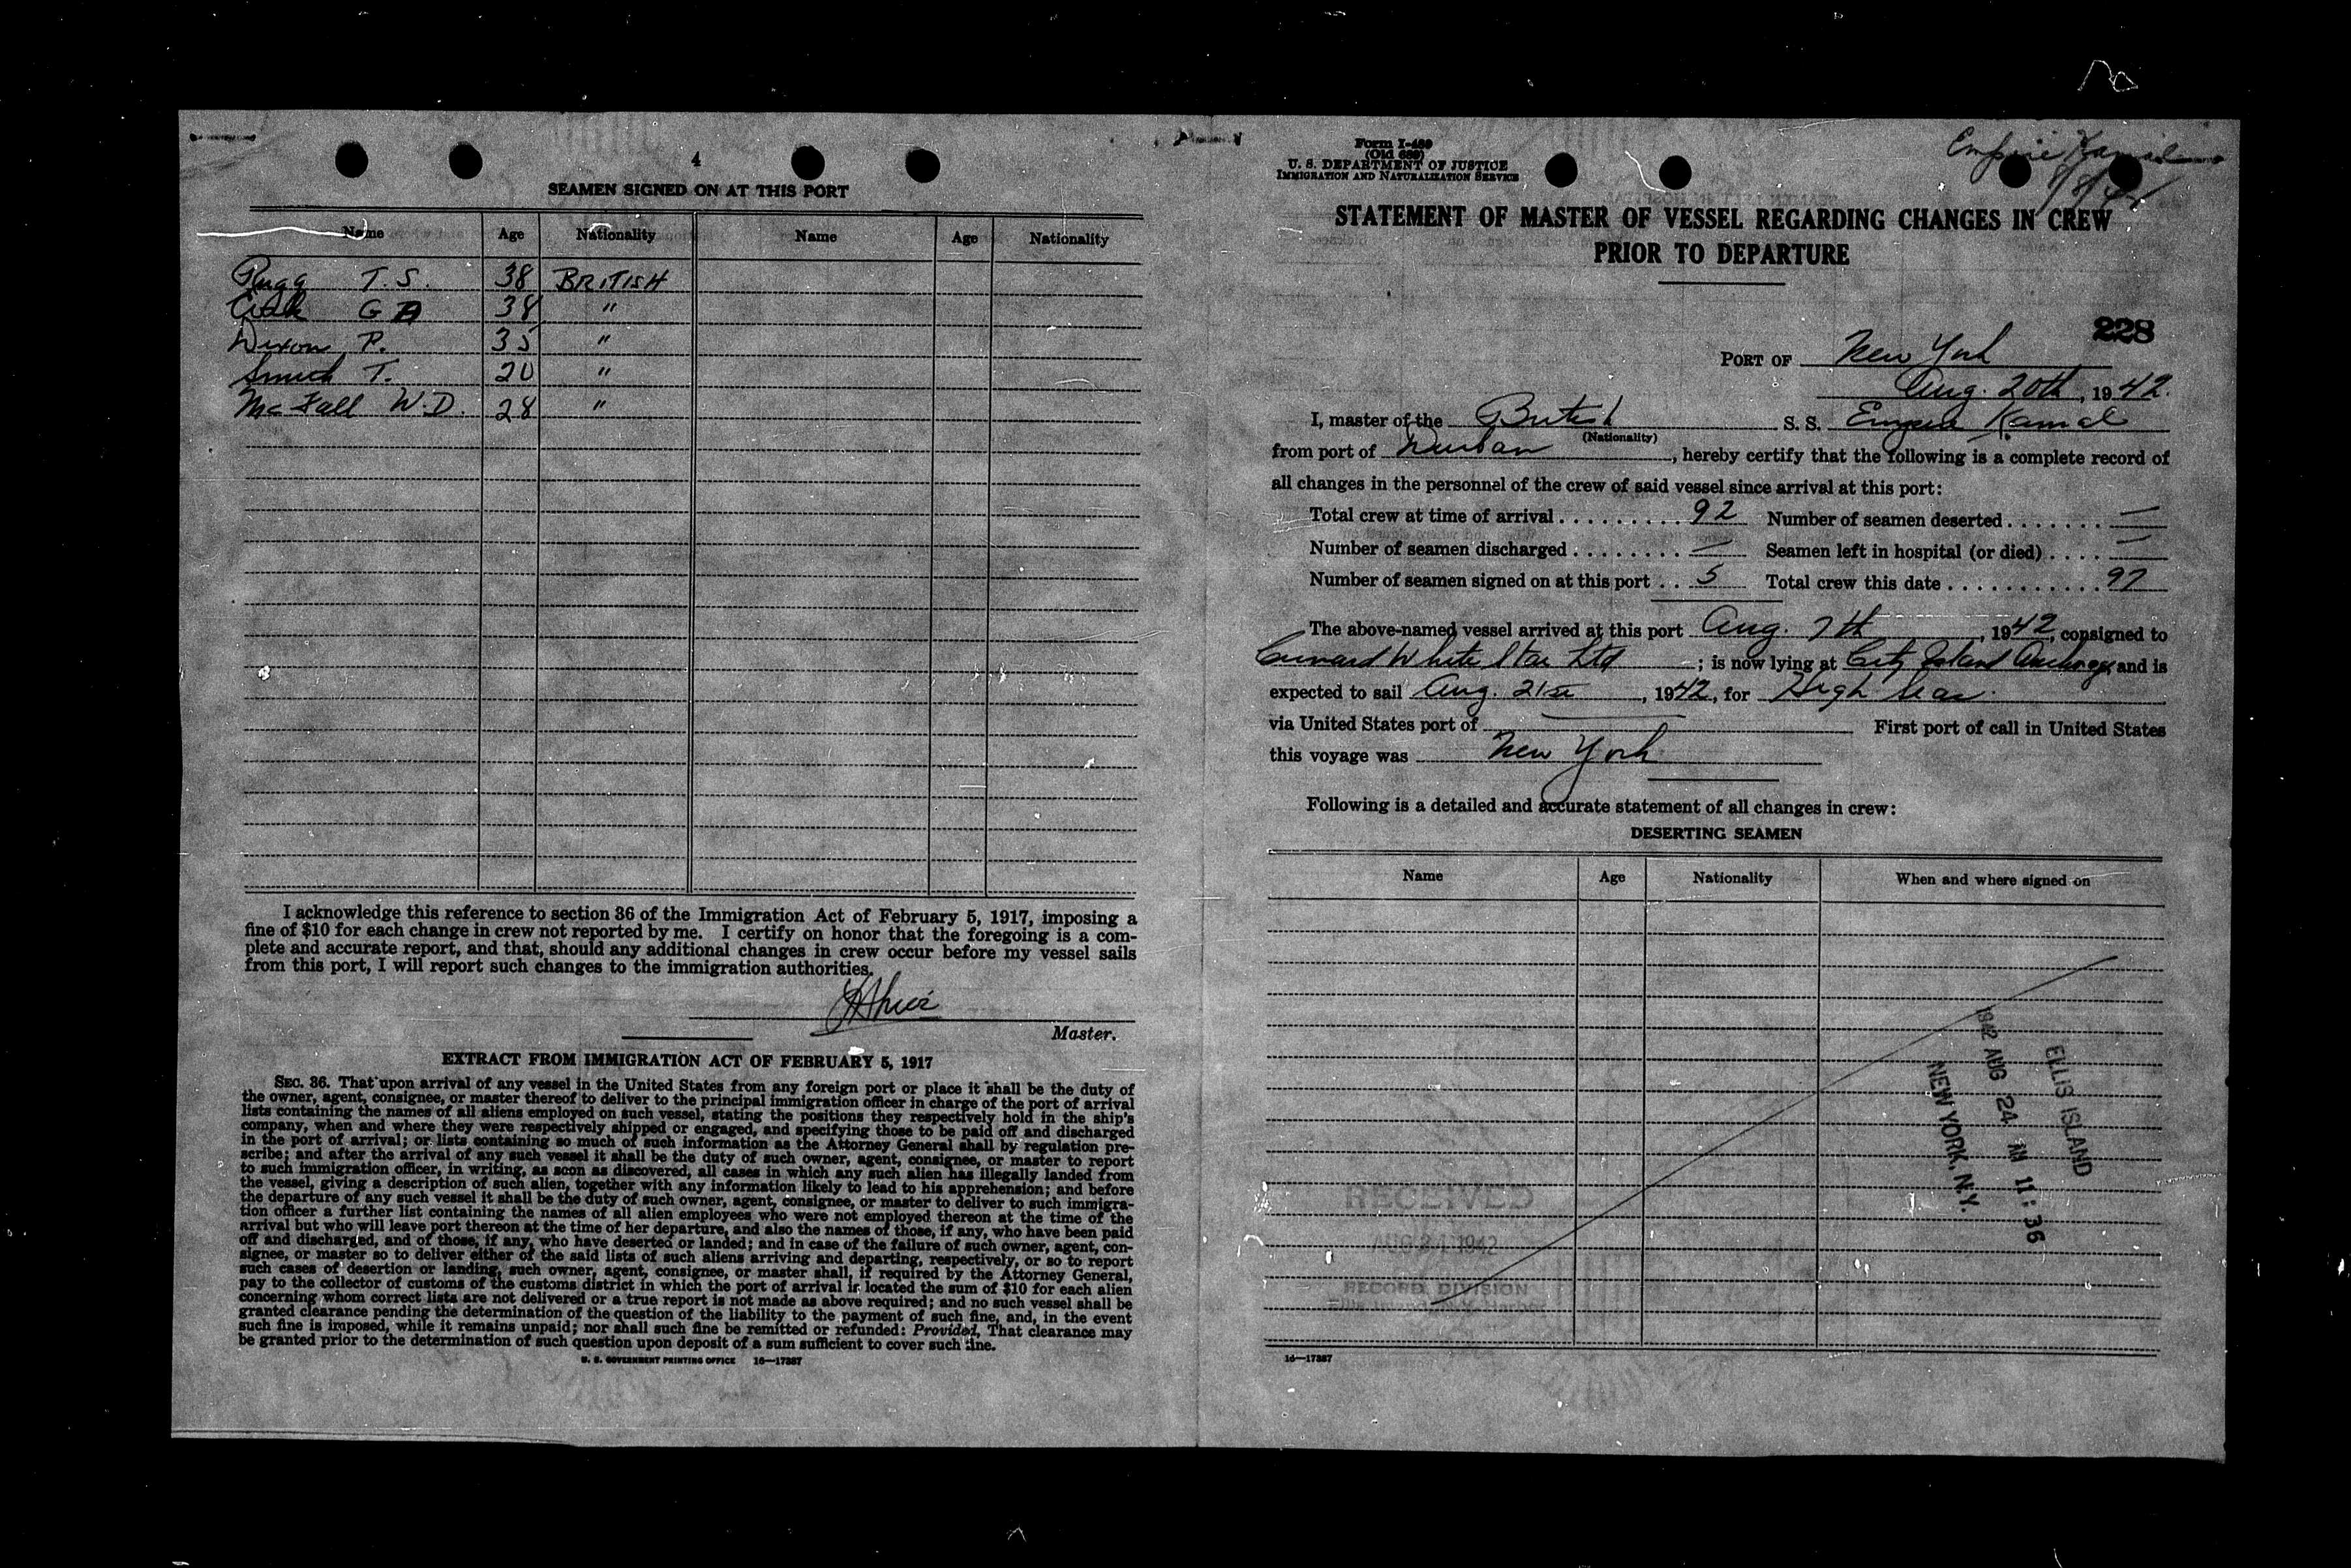 4
SEAMEN SIGNED ON AT THIS PORT
Name Age Nationality Name Age Nationality
Rugg T. S. 38 BRITISH
G A 38 "
Dixon P. 35 "
Smith T. 20 "
McFall W. D. 28 "
I acknowledge this reference to section 36 of the Immigration Act of February 5, 1917, imposing a
fine of $10 for each change in crew not reported by me. I certify on honor that the foregoing is a com-
plete and accurate report, and that, should any additional changes in crew occur before my vessel sails
from this port, I will report such changes to the immigration authorities.
Master.
EXTRACT FROM IMMIGRATION ACT OF FEBRUARY 5, 1917
SEC. 36. That upon arrival of any vessel in the United States from any foreign port or place it shall be the duty of
the owner, agent, consignee, or master thereof to deliver to the principal immigration officer in charge of the port of arrival
lists containing the names of all aliens employed on such vessel, stating the positions they respectively hold in the ship's
company, when and where they were respectively shipped or engaged, and specifying those to be paid off and discharged
in the port of arrival; or lists containing so much of such information as the Attorney General shall by regulation pre-
scribe; and after the arrival of any such vessel it shall be the duty of such owner, agent, consignee, or master to report
to such immigration officer, in writing, as soon as discovered, all cases in which any such alien has illegally landed from
the vessel, giving a description of such alien, together with any information likely to lead to his apprehension; and before
the departure of any such vessel it shall be the duty of such owner, agent, consignee, or master to deliver to such immigra-
tion officer a further list containing the names of all alien employees who were not employed thereon at the time of the
arrival but who will leave port thereon at the time of her departure, and also the names of those, if any, who have been paid
off and discharged, and of those, if any, who have deserted or landed; and in case of the failure of such owner, agent, con-
signee, or master so to deliver either of the said lists of such aliens arriving and departing, respectively, or so to report
such cases of desertion or landing, such owner, agent, consignee, or master shall, if required by the Attorney General,
pay to the collector of customs of the customs district in which the port of arrival is located the sum of $10 for each alien
concerning whom correct lists are not delivered or a true report is not made as above required; and no such vessel shall be
granted clearance pending the determination of the question of the liability to the payment of such fine, and, in the event
such fine is imposed, while it remains unpaid; nor shall such fine be remitted or refunded: Provided, That clearance may
be granted prior to the determination of such question upon deposit of a sum sufficient to cover such fine.
U. S. GOVERNMENT PRINTING OFFICE 16—17387
Form I-489
(Old 689)
U. S. DEPARTMENT OF JUSTICE
IMMIGRATION AND NATURALIZATION SERVICE
Empire Kamal
8/8/42
STATEMENT OF MASTER OF VESSEL REGARDING CHANGES IN CREW
PRIOR TO DEPARTURE
228
PORT OF New York
Aug. 20th, 1942.
I, master of the British S. S. Empire Kamal
(Nationality)
from port of Durban, hereby certify that the following is a complete record of
all changes in the personnel of the crew of said vessel since arrival at this port:
Total crew at time of arrival . . . . . . . . . 92 Number of seamen deserted . . . . . . . —
Number of seamen discharged . . . . . . . . — Seamen left in hospital (or died) . . . . —
Number of seamen signed on at this port . . 5 Total crew this date . . . . . . . . . . . 97
The above-named vessel arrived at this port Aug. 7th, 1942, consigned to
Cunard White Star Ltd; is now lying at City Island Anchorage and is
expected to sail Aug. 21st, 1942, for High Seas.
via United States port of — First port of call in United States
this voyage was New York
Following is a detailed and accurate statement of all changes in crew:
DESERTING SEAMEN
Name Age Nationality When and where signed on
ELLIS ISLAND
1942 AUG 24 AM 11:36
NEW YORK, N.Y.
RECEIVED
AUG 24 1942
RECORD DIVISION
16—17387